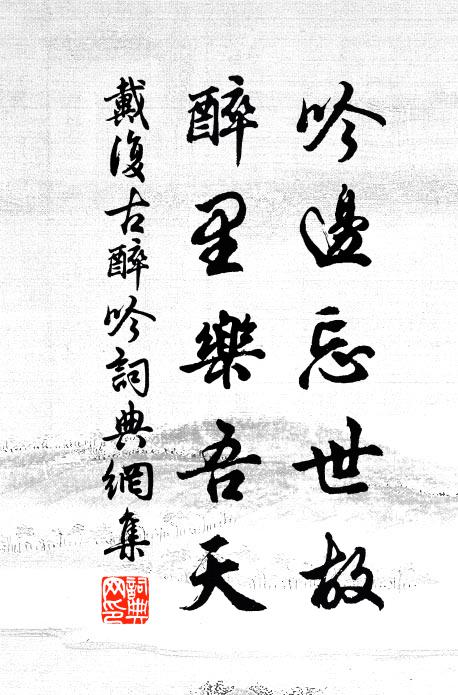 吟邊忘世故
醉里樂吾天
戴復古醉吟詞典網集
詞典网印